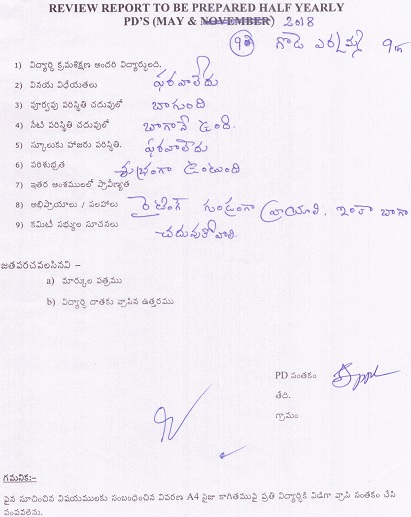 REVIEW REPORT TO BE PREPARED HALF YEARLY
PD'S (MAY & NOVEMBER) 2018
గొడె ఎర్రమ్మ 9th
1) విద్యార్థి క్రమశిక్షణ అందరి విద్యార్థులది.
2) వినయ విధేయతలు పరవాలేదు
3) పూర్వపు పరిస్థితి చదువులో బాగుంది
4) నేటి పరిస్థితి చదువులో బాగానే ఉంది.
5) స్కూలుకు హాజరు పరిస్థితి. పరవాలేదు
6) పరిశుభ్రత శుభ్రంగా ఉంటుంది
7) ఇతర అంశములలో ప్రావీణ్యత
8) అభిప్రాయాలు / సలహాలు రైటింగ్ గుండ్రంగా వ్రాయాలి. ఇంకా బాగా
9) కమిటీ సభ్యుల సూచనలు చదువుకోవాలి.
జతపరచవలసినవి –
a) మార్కుల పత్రము
b) విద్యార్థి దాతకు వ్రాసిన ఉత్తరము
PD సంతకం
తేది.
గ్రామం
గమనిక:-
పైన సూచించిన విషయములకు సంబంధించిన వివరణ A4 సైజు కాగితముపై ప్రతి విద్యార్థికి విడిగా వ్రాసి సంతకం చేసి
పంపవలెను.